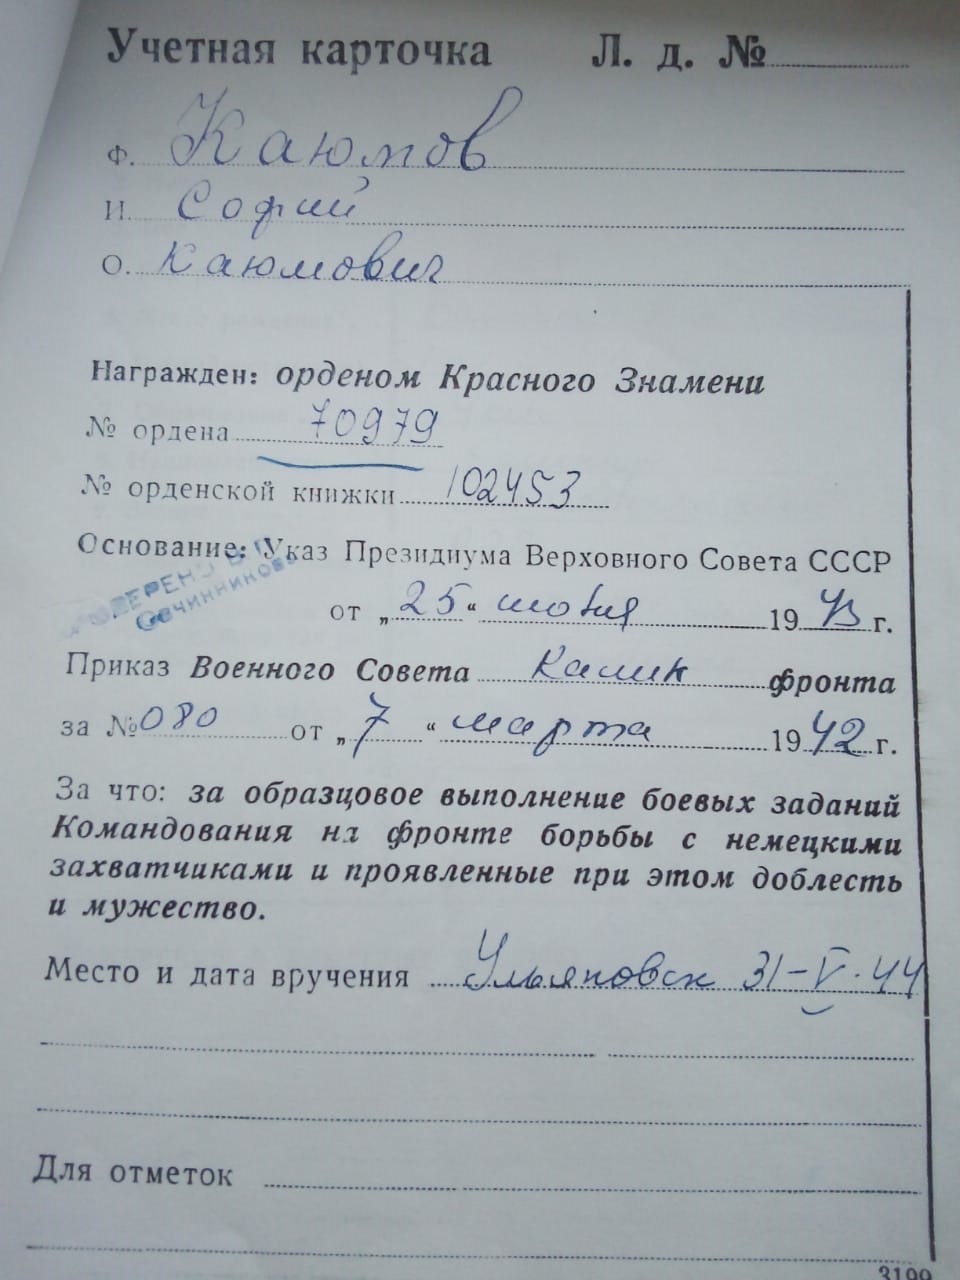 Учетная карточка Л. д. №
Ф. Каюмов
И. Софий
О. Каюмович
Награжден: орденом Красного Знамени
№ ордена 70979
№ орденской книжки 102453
Основание: Указ Президиума Верховного Совета СССР
Овчинников
от „25“ июня 1943 г.
Приказ Военного Совета Калин фронта
за № 080 от „7“ марта 1942 г.
За что: за образцовое выполнение боевых заданий
Командования на фронте борьбы с немецкими
захватчиками и проявленные при этом доблесть
и мужество.
Место и дата вручения Ульяновск 31-V.44
Для отметок
3199